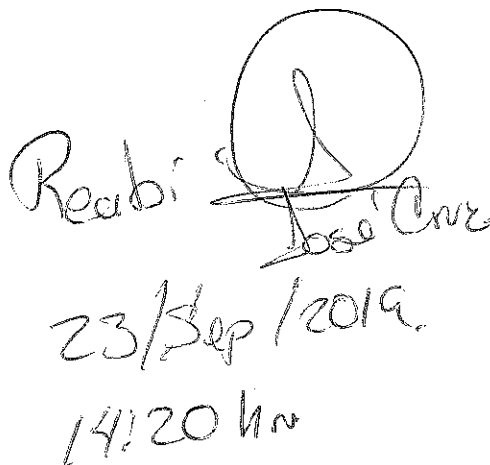 Recibí
José Cruz
23/Sep/2019.
14:20 hr